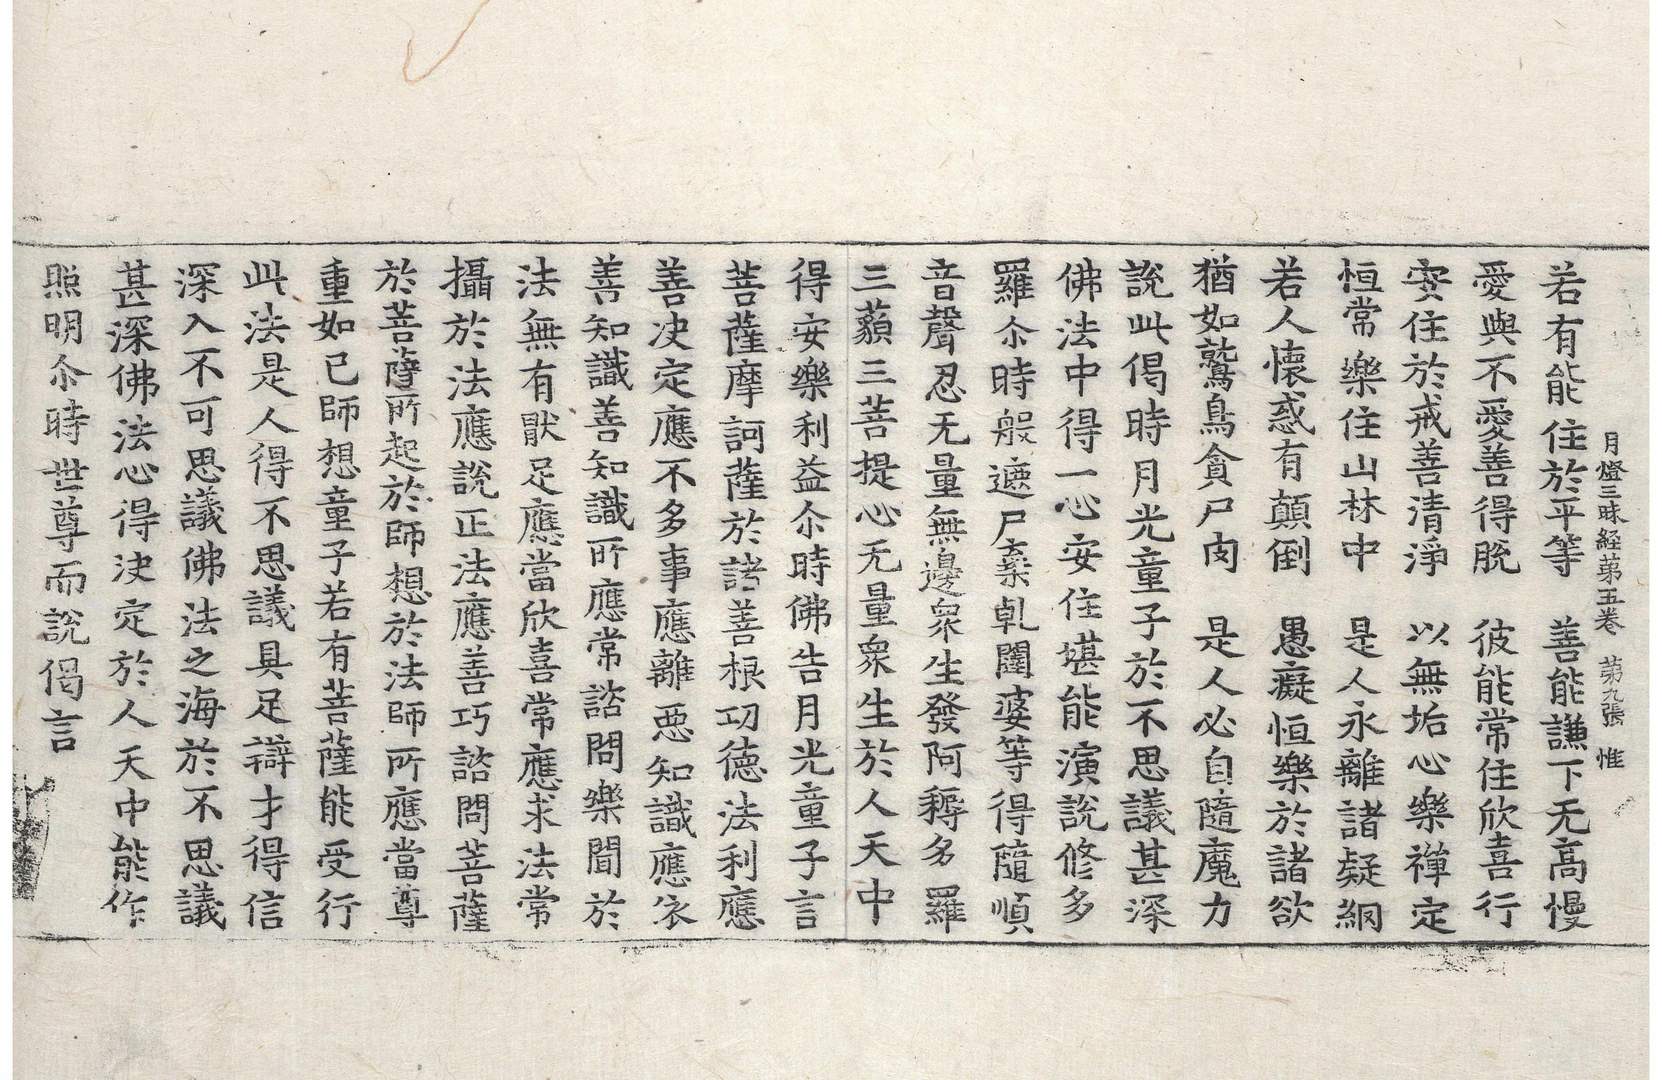 月燈三昧経苐五卷　苐九張　惟
若有能住於平等　善能謙下无高慢
愛與不愛善得脫　彼能常住欣喜行
安住於戒善清淨　以無垢心樂禪定
恒常樂住山林中　是人永離諸疑網
若人懷惑有顛倒　愚癡恒樂於諸欲
猶如鷲鳥貪尸肉　是人必自隨魔力
說此偈時月光童子於不思議甚深
佛法中得一心安住堪能演說修多
羅尒時般遮尸棄乹闥婆等得隨順
音聲忍无量無邊衆生發阿耨多羅
三藐三菩提心无量衆生於人天中
得安樂利益尒時佛告月光童子言
菩薩摩訶薩於諸善根㓛德法利應
善决定應不多事應離惡知識應依
善知識善知識所應常諮問樂聞於
法無有猒足應當欣喜常應求法常
攝於法應說正法應善巧諮問菩薩
於菩薩所起於師想於法師所應當尊
重如已師想童子若有菩薩能受行
此法是人得不思議具足辯才得信
深入不可思議佛法之海於不思議
甚深佛法心得决定於人天中能作
照明尒時世尊而說偈言